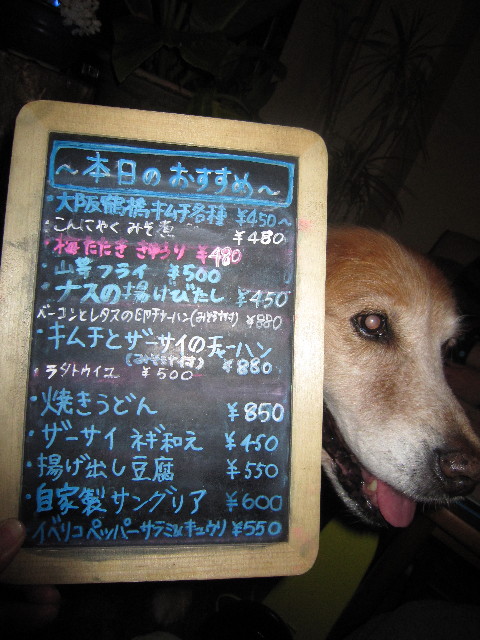 ～本日のおすすめ～
・大阪鶴橋キムチ各種 ¥450～
こんにゃくみそ煮 ¥480
・梅たたききゅうり ¥480
・山芋フライ ¥500
・ナスの揚げびたし ¥450
ベーコンとレタスの卵チャーハン(みそ汁付) ¥880
・キムチとザーサイのチャーハン
(みそ汁付) ¥880
・ラタトゥイユ ¥500
・焼きうどん ¥850
・ザーサイ ネギ和え ¥450
・揚げ出し豆腐 ¥550
・自家製サングリア ¥600
イベリコペッパーサラミ&キュウリ ¥550